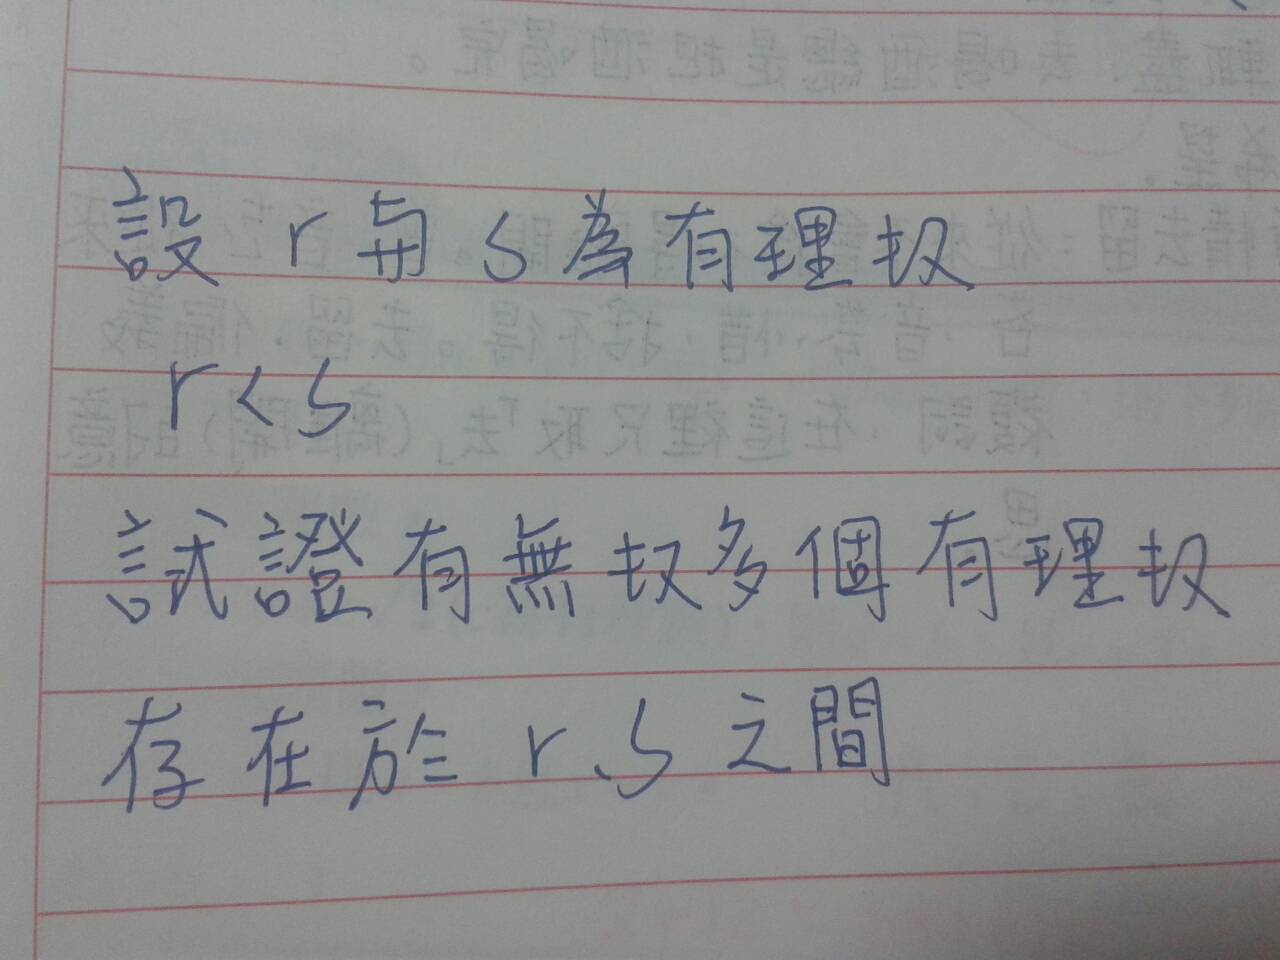 設 r 與 s 為有理数
r < s
試證有無数多個有理数
存在於 r、s 之間